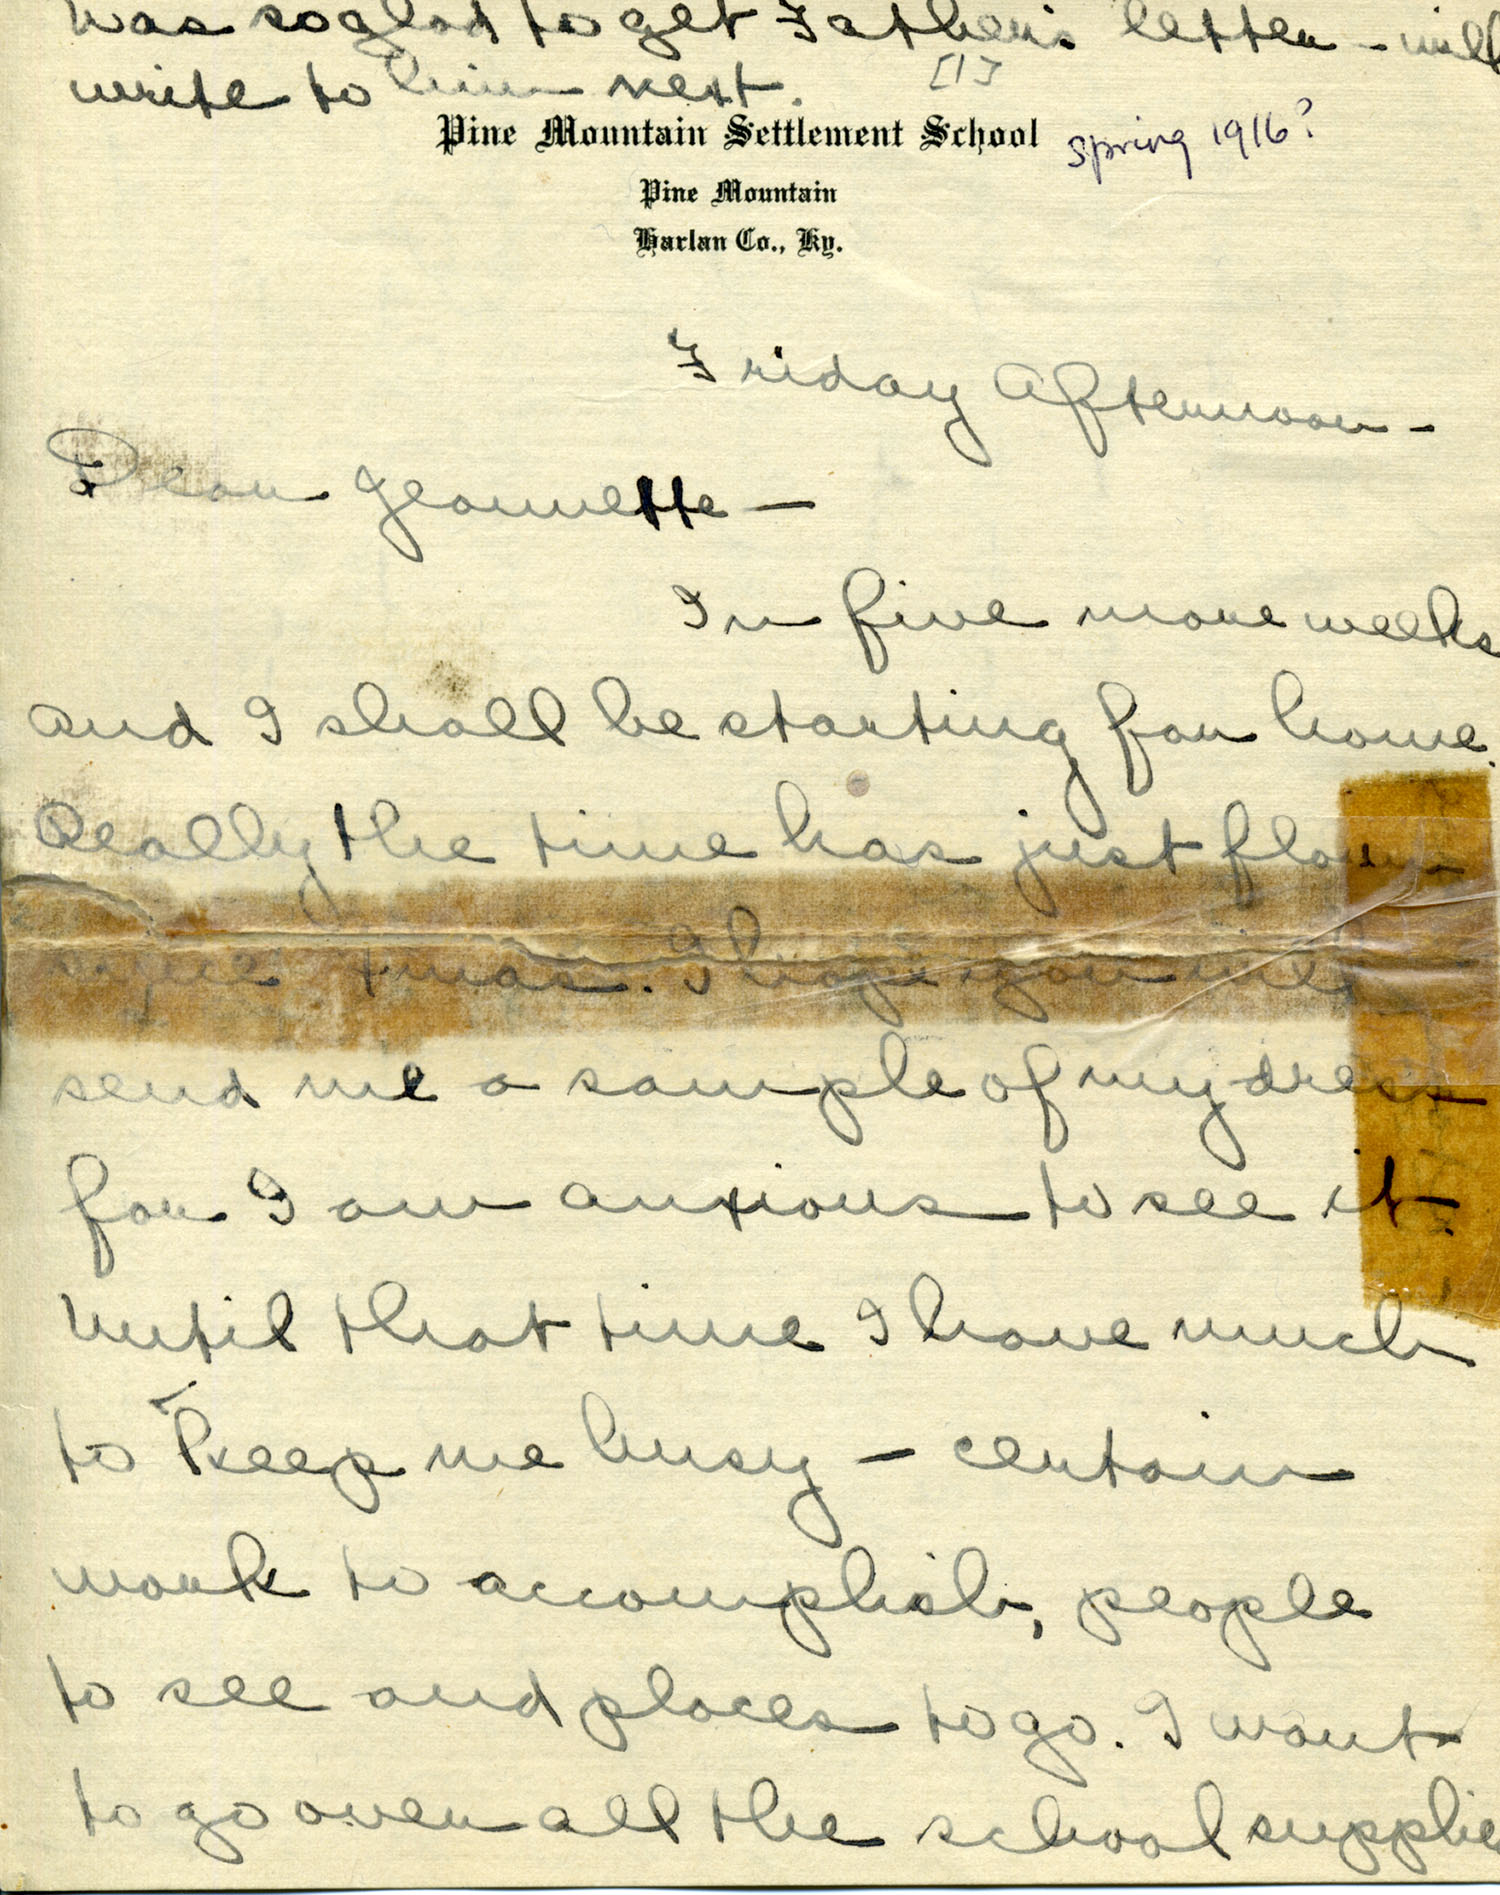 was so glad to get Father's letter - will
write to him next.
[1]
Pine Mountain Settlement School
spring 1916?
Pine Mountain
Harlan Co., Ky.
Friday Afternoon -
Dear Jeannette -
In five more weeks
and I shall be starting for home.
Really the time has just flown
since Xmas. I hope you will
send me a sample of my dress
for I am anxious to see it.
Until that time I have much
to keep me busy - certain
work to accomplish, people
to see and places to go. I want
to go over all the school supplies